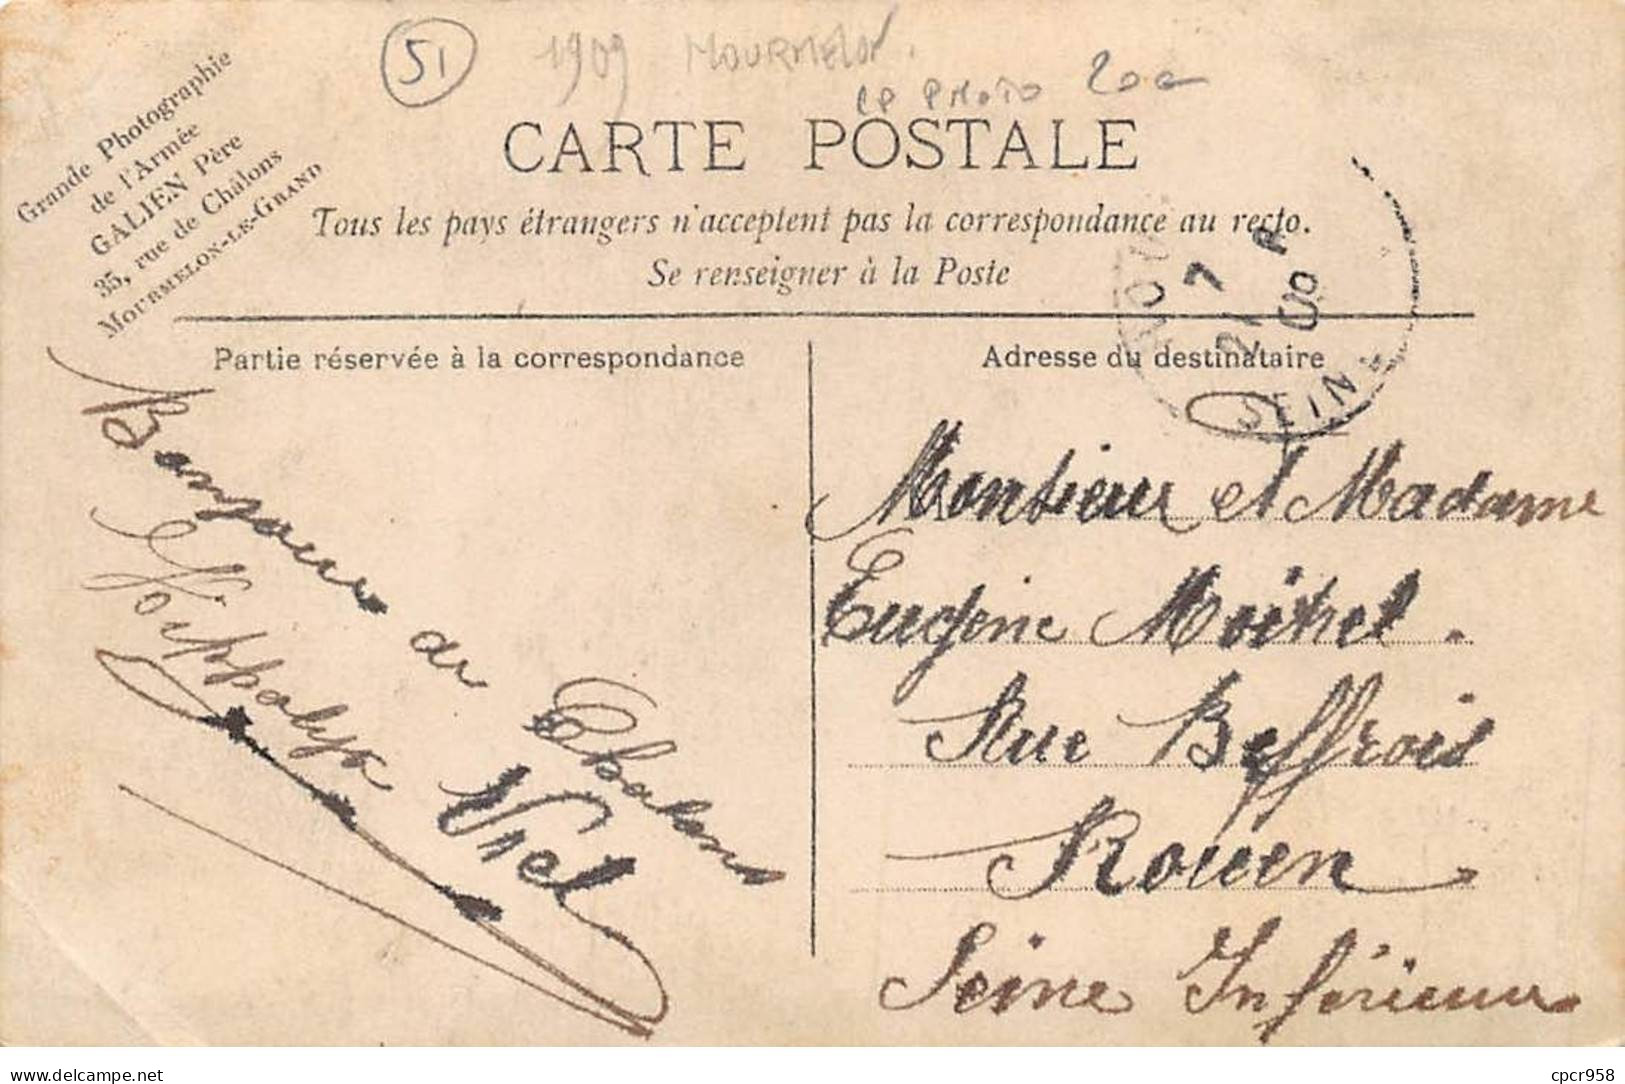 51
1909 MOURMELON.
CP PHOTO 200
Grande Photographie
de l'Armée
GALIEN Père
35, rue de Châlons
MOURMELON-LE-GRAND
CARTE POSTALE
Tous les pays étrangers n'acceptent pas la correspondance au recto.
Se renseigner à la Poste
21 7
09
SEINE
Partie réservée à la correspondance
Adresse du destinataire
Bonjour de Chalons
Hippolyte
Viel
Monsieur et Madame
Eugène Moitrel.
Rue Beffrois
Rouen
Seine Inférieure
delcampe.net
cpcr958